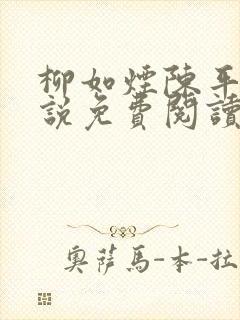 柳如煙陳平
說免費閱讀
奧薩馬-本-拉